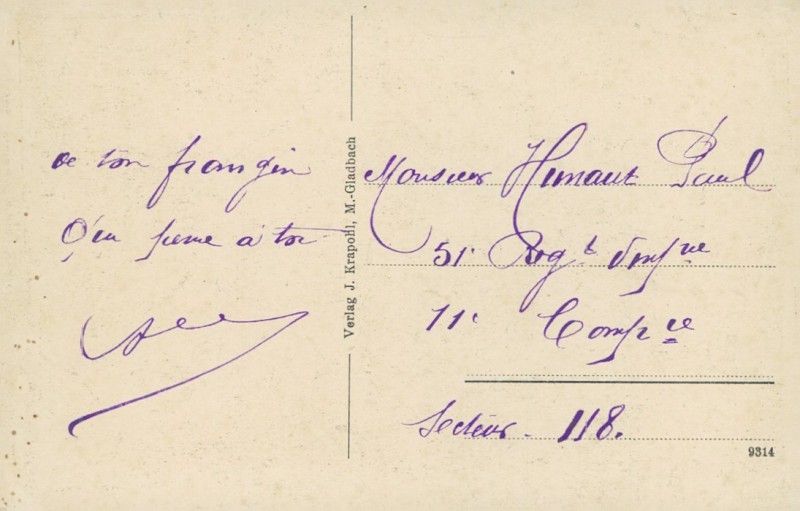 de ton frangin
à toi
Verlag J. Krapohl, M.-Gladbach
Monsieur Hunaut Paul
51e Regt d'Infrie
11e Compie
Secteur. 118.
9314